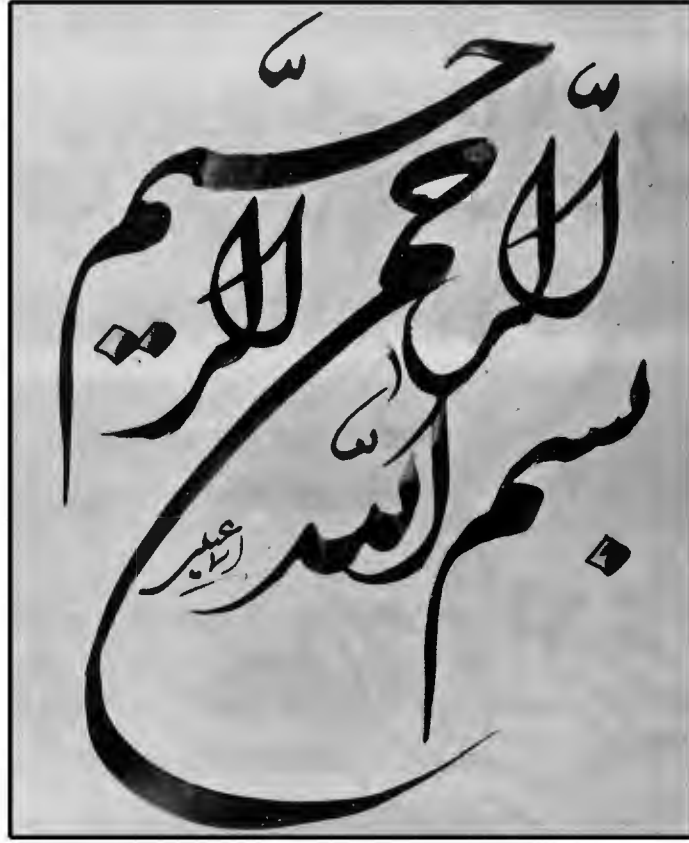 بسم الله
الرحمن
الرحیم